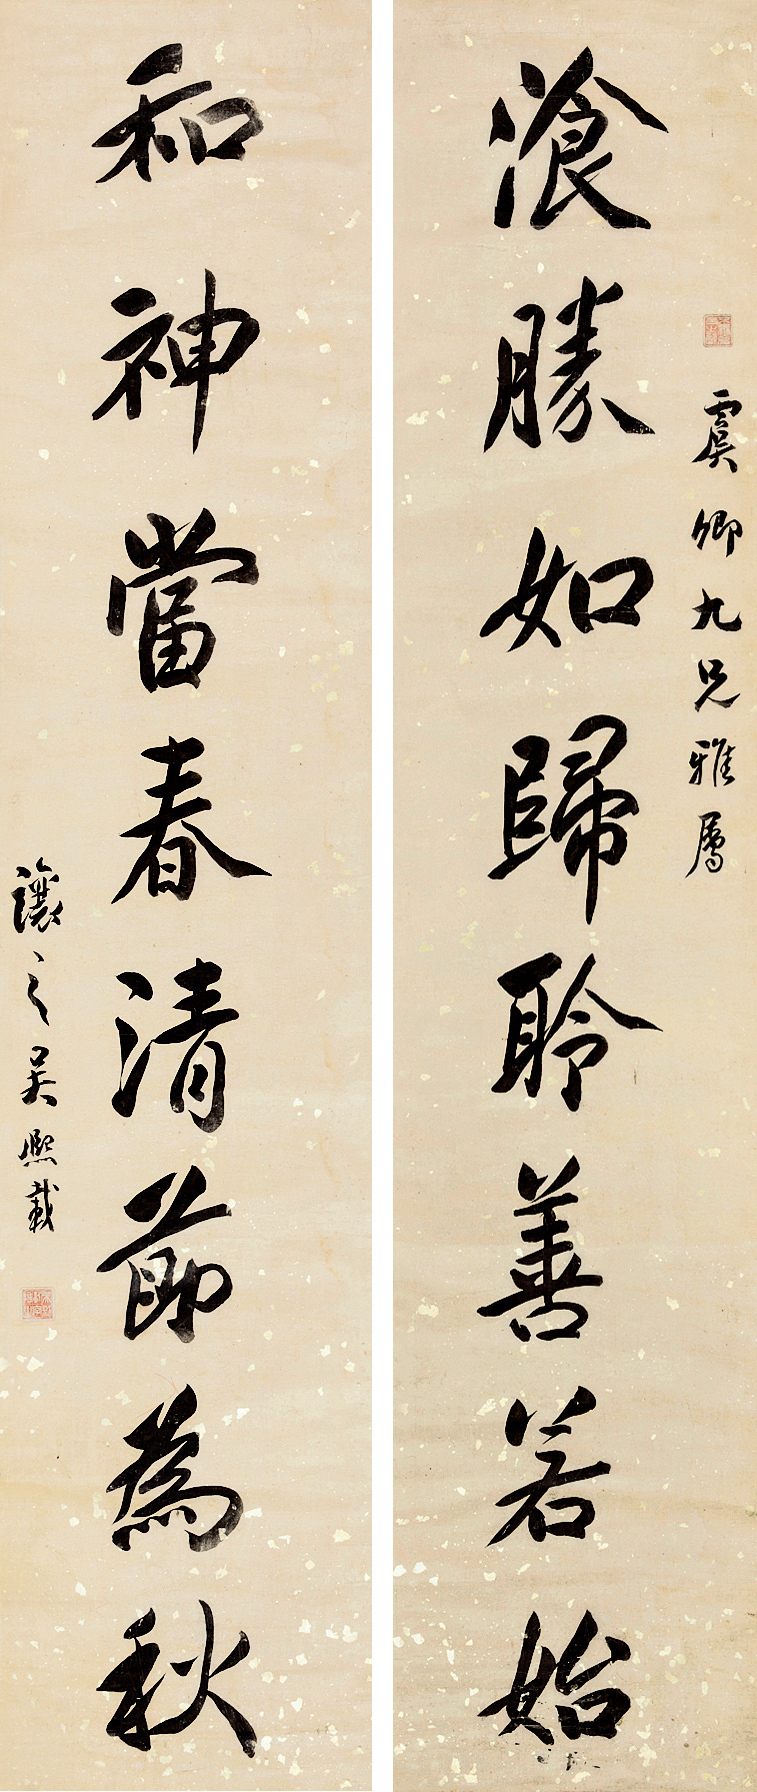 虞卿九兄雅属
飡勝如歸聆善若始
和神當春清節為秋
讓之吳熙載